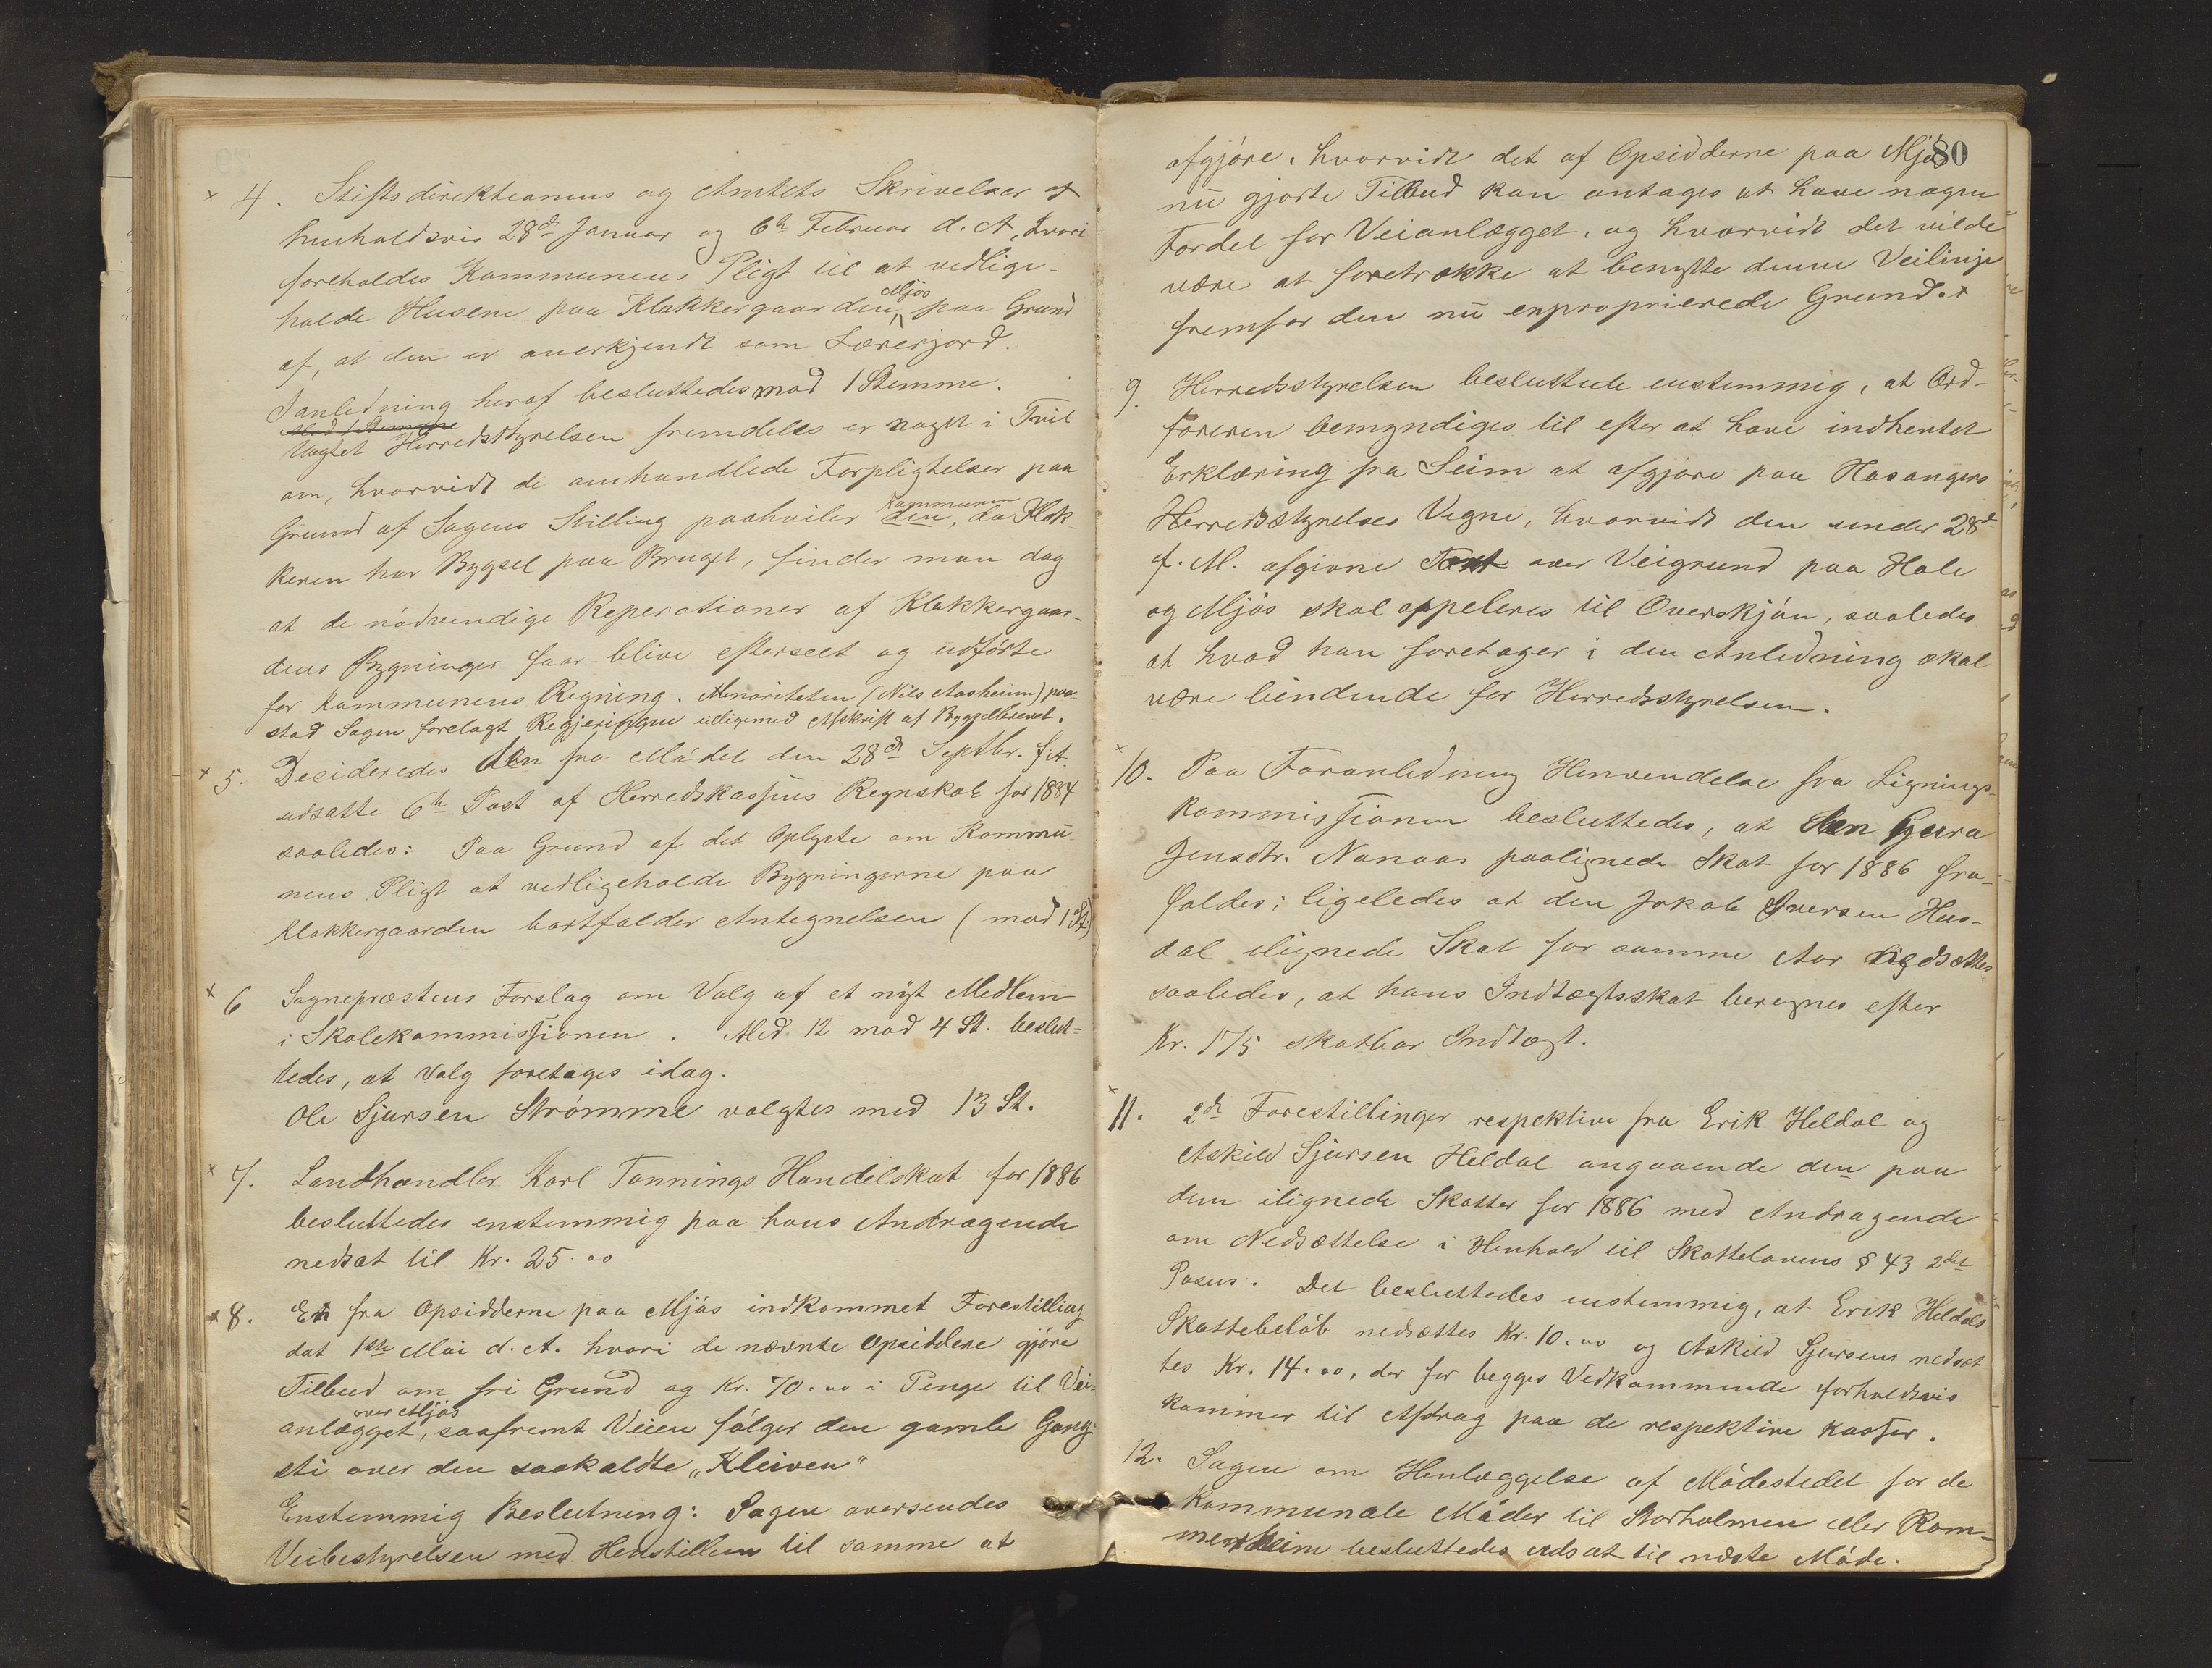 × 4. Stiftsdirektionens og Amtets Skrivelser af
henholdsvis 28de Januar og 6te Februar d. A., hvori
foreholdes Kommunens Pligt til at vedlige-
holde Husene paa Klokkergaarden Mjøs paa Grund
af, at den er anerkjendt som Lærerjord.
I anledning heraf besluttedes mod 1 Stemme.
Mod 1 Stemme
Uagtet Herredsstyrelsen fremdeles er noget i Tvil
om, hvorvidt de omhandlede Forpligtelser paa
Grund af Sagens Stilling paahviler den, Kommunen da Klok-
keren har Bygsel paa Bruget, finder man dog
at de nødvendige Reperationer af Klokkergaar-
dens Bygninger faar blive efterseet og udførte
for Kommunens Regning. Minoriteten (Nils Aasheim) paa-
stod Sagen forelagt Regjeringen tilligemed Afskrift af Bygselbrevet.
× 5. Desideredes den fra Mødet den 28de Septbr. f. A.
udsatte 6te Post af Herredskassens Regnskab for 1884
saaledes: Paa Grund af det Oplyste om Kommu-
nens Pligt at vedligeholde Bygningerne paa
Klokkergaarden bortfalder Antegnelsen (mod 1 St.)
× 6 Sognepræstens Forslag om Valg af et nyt Medlem
i Skolekommissionen. Med 12 mod 4 St. beslut-
tedes, at Valg foretages idag.
Ole Sjursen Strømme valgtes med 13 St.
× 7. Landhandler Karl Tonnings Handelskat for 1886
besluttedes enstemmig paa hans Andragende
nedsat til Kr. 25.00
× 8. En fra Opsidderne paa Mjøs indkommet Forestilling
dat 1ste Mai d. A. hvori de nævnte Opsiddere gjøre
Tilbud om fri Grund og Kr. 70.00 i Penge til Vei-
anlægget over Mjøs, saafremt Veien følger den gamle Gang-
sti over den saakaldte „Kleiven“
Enstemmig Beslutning: Sagen oversendes
Veibestyrelsen med Henstillen til samme at
80
afgjøre, hvorvidt det af Opsidderne paa Mjøs
nu gjorte Tilbud kan antages at have nogen
Fordel for Veianlægget, og hvorvidt det vilde
være at foretrække at benytte denne Veilinje
fremfor den nu exproprierede Grund.
9. Herredsstyrelsen besluttede enstemmig, at Ord-
føreren bemyndiges til efter at have indhentet
Erklæring fra Seim at afgjøre paa Hosangers
Herredsstyrelses Vegne, hvorvidt den under 28de
f. M. afgivne Taxt over Veigrund paa Hole
og Mjøs skal appeleres til Overskjøn, saaledes
at hvad han foretager i den Anledning skal
være bindende for Herredsstyrelsen.
× 10. Paa Foranledning Henvendelse fra Lignings-
kommissionen besluttedes, at den Gjura
Jensdtr. Nanaas paalignede Skat for 1886 fra-
faldes; ligeledes at den Jakob Iversen Hus-
dal ilignede Skat for samme Aar nedsættes
saaledes, at hans Indtægtsskat beregnes efter
Kr. 175 skatbar Indtægt.
× 11. 2de Forestillinger respektive fra Erik Heldal og
Askild Sjursen Heldal angaaende den paa
dem ilignede Skatter for 1886 med Andragende
om Nedsættelse i Henhold til Skattelovens § 43 2det
Passus. Det besluttedes enstemmig, at Erik Heldals
Skattebeløb nedsættes Kr. 10.00 og Askild Sjursens nedsæt-
tes Kr. 14.00, der for begges Vedkommende forholdsvis
kommer til Afdrag paa de respektive Kasser.
12. Sagen om Henlæggelse af Mødestedet for de
kommunale Møder til Storholmen eller Rom-
merheim besluttedes udsat til næste Møde.